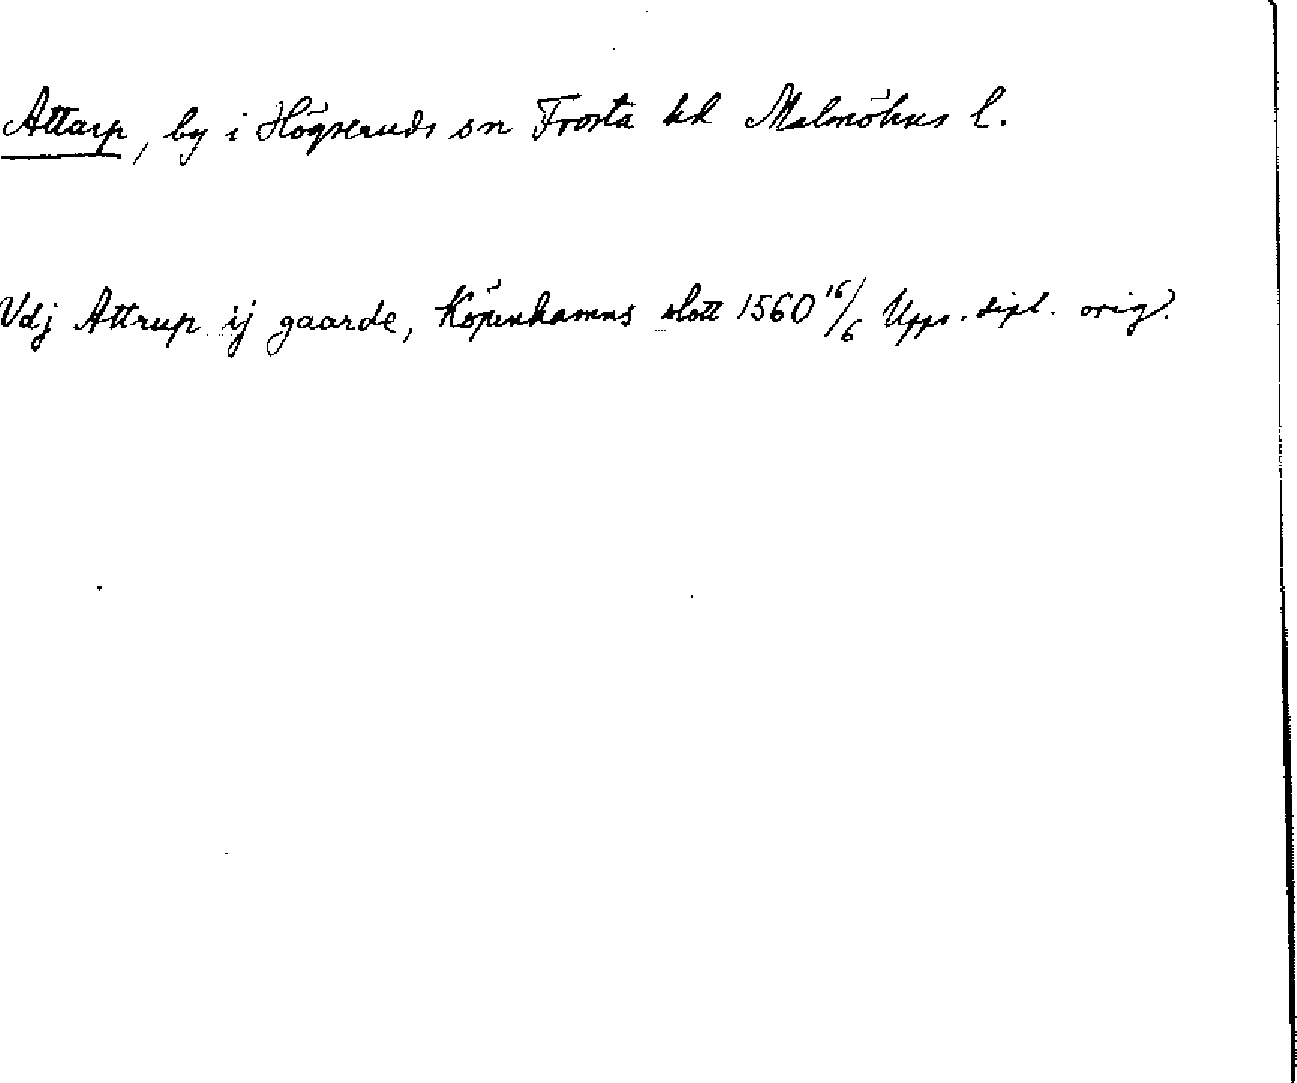 Attarp, by i Högseruds sn Frosta hd Malmöhus l.
Vdj Attrup ij gaarde, Köpenhamns slott 1560 16/6 Upps. dipl. orig.